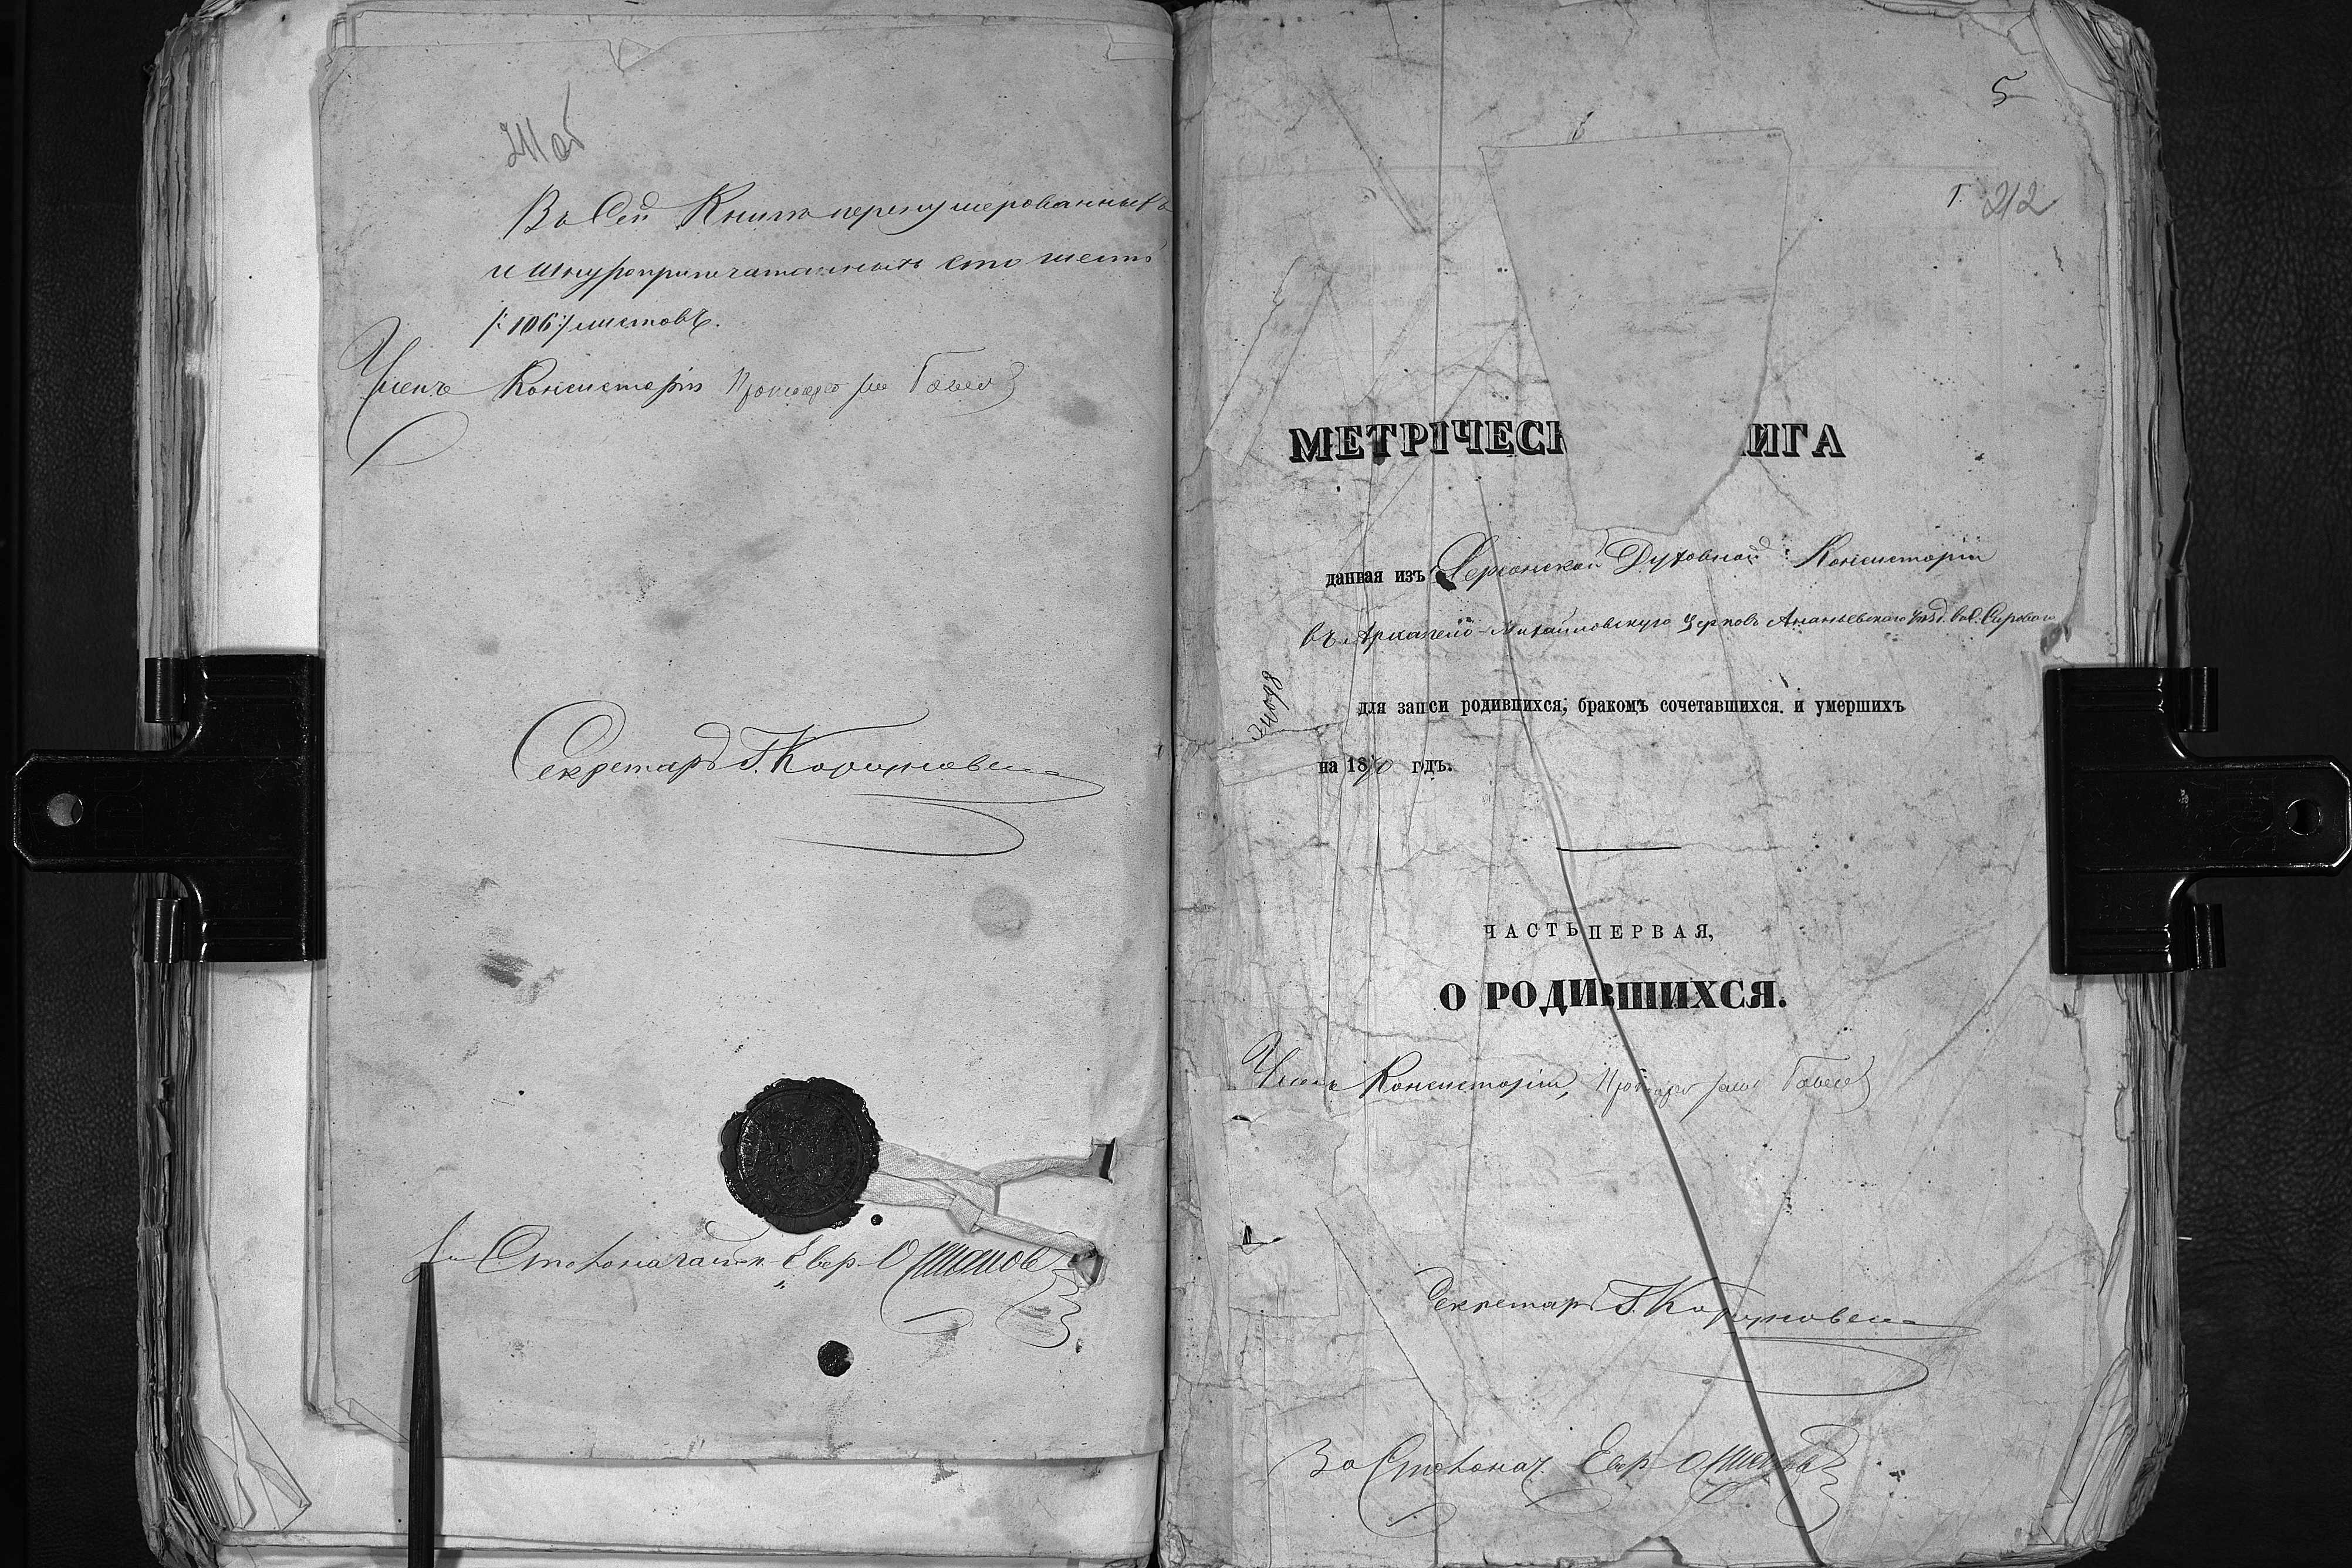 211 об
Въ Сей Книгѣ перенумерованныхъ
и шнуроприпечатанныхъ сто шесть
/:106:/ листовъ.
Членъ Консисторіи Протоіерей
Секретарь Г.
За Столоначальн. Евер.
5
1. 212
МЕТРІЧЕСК ИГА
данная изъ Херсонской Духовной Консисторіи
въ Архангело-Михайловскую церковь Ананьевского уѣзд. въ с. Сырово
для запси родившихся, бракомъ сочетавшихся. и умершихъ
на 1870 гдъ.
ЧАСТЬ ПЕРВАЯ,
О РОДИВШИХСЯ.
Членъ Консисторіи, Протоіерей
Секретарь Г.
За Столонач. Евер